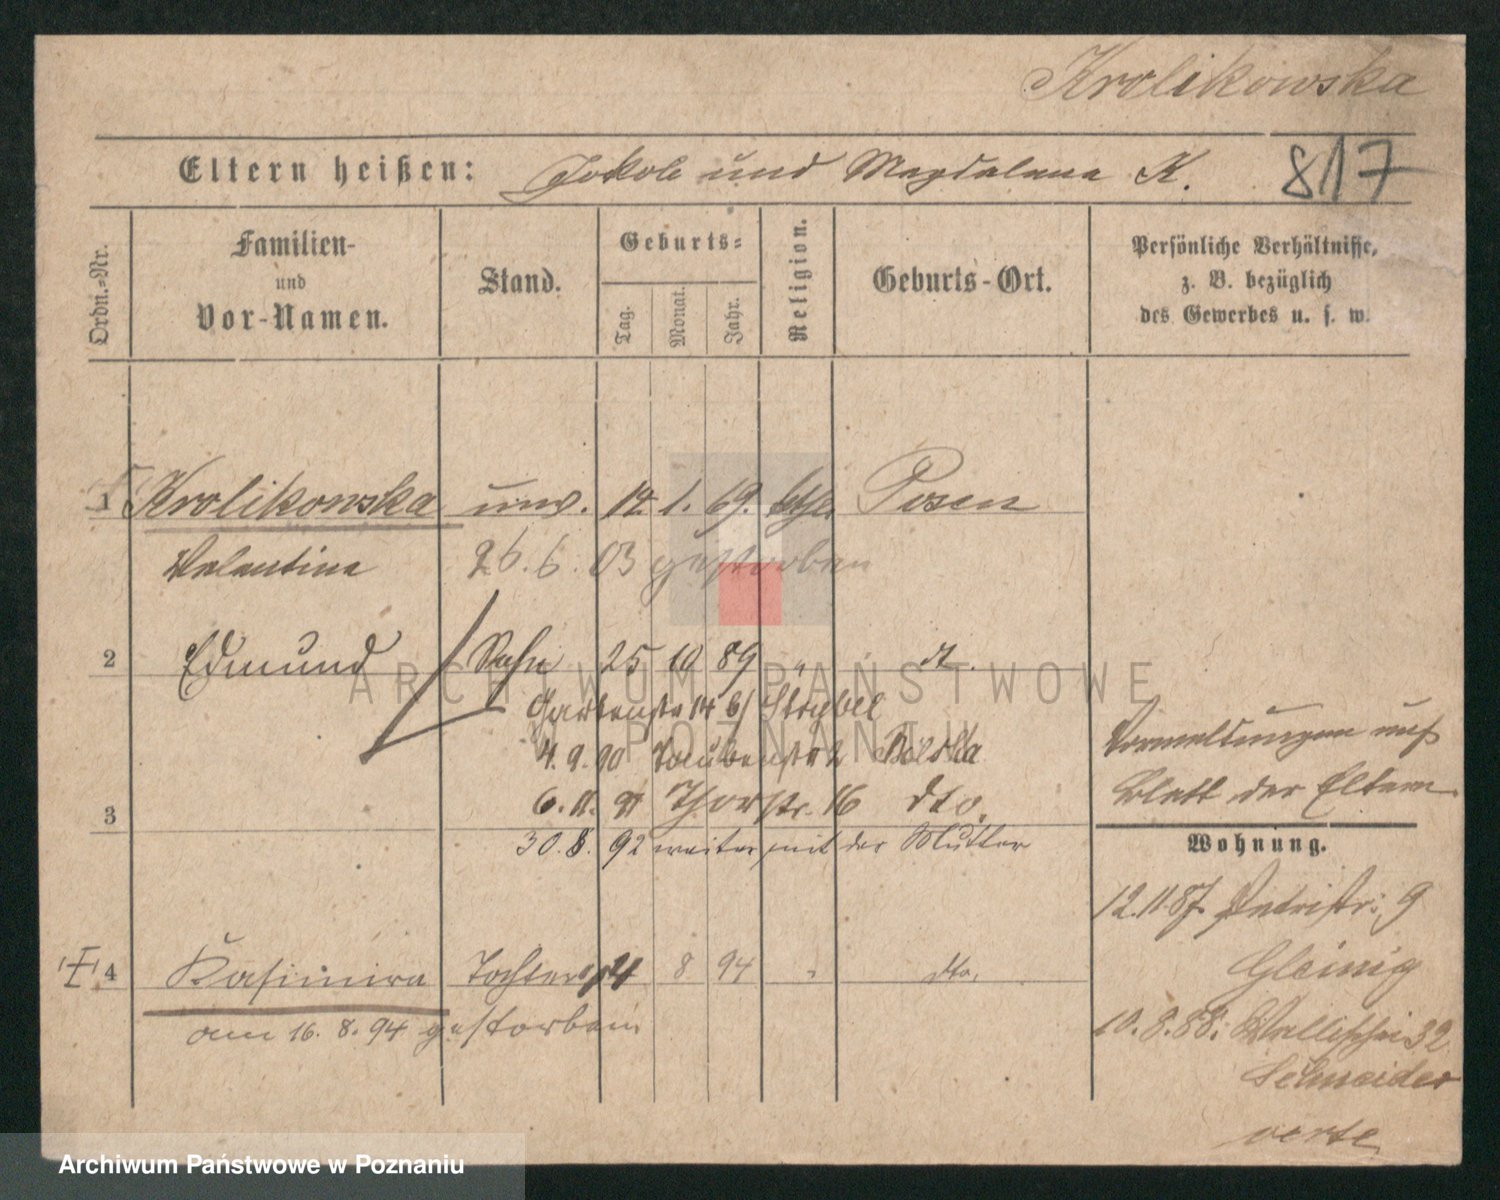 Krolikowska
Eltern heißen: Jakob und Magdalena K. 817
Ordn.-Nr.
Familien-
und
Vor-Namen.
Stand.
Geburts-
Tag.
Monat.
Jahr.
Religion.
Geburts-Ort.
Persönliche Verhältnisse,
z. B. bezüglich
des Gewerbes u. s. w.
1 Krolikowska unv. 14. 1. 69. kth. Posen
Valentina 26. 6. 03 gestorben
2 Edmund Sohn 25 10 89 " dt.
Gartenstr 14 b/
4. 9. 90 2
3 6. 11. 91 Thorstr. 16 dto.
30. 8. 92 weiter mit der Mutter
4 Kasimira Tochter 8 94 " dto.
am 16. 8. 94 gestorben
Vormeldungen auf
Blatt der Eltern.
Wohnung.
12.11.87. Petristr. 9
Gleinig
10. 8. 88. Wallischei 32
Schneider
verte
ARCHIWUM PAŃSTWOWE
W POZNANIU
Archiwum Państwowe w Poznaniu